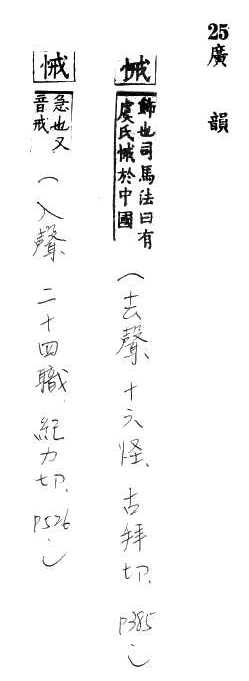 25廣韻
悈 飾也司馬法曰有虞氏悈於中國 (去聲、十六怪、古拜切、P385)
悈 急也又音戒 (入聲 二十四職 紀力切、P526)